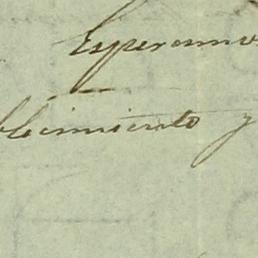 Esperamos
blecimiento y